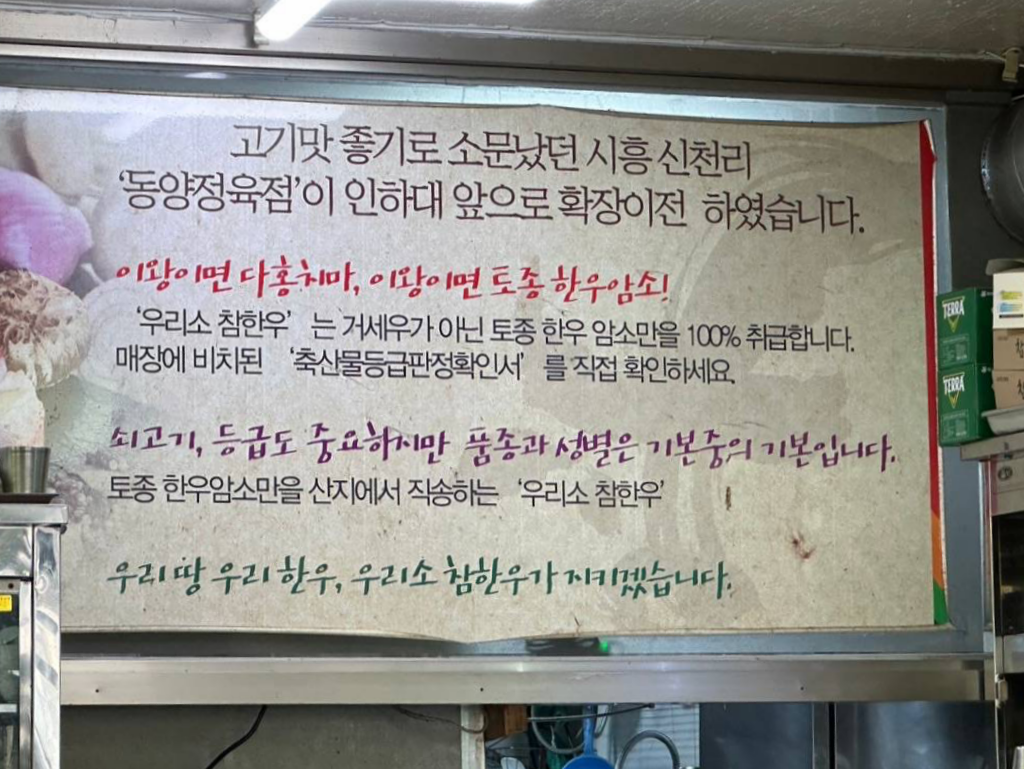 고기맛 좋기로 소문났던 시흥 신천리
‘동양정육점’이 인하대 앞으로 확장이전 하였습니다.
이왕이면 다홍치마, 이왕이면 토종 한우암소!
‘우리소 참한우’ 는 거세우가 아닌 토종 한우 암소만을 100% 취급합니다.
매장에 비치된 ‘축산물등급판정확인서’ 를 직접 확인하세요.
쇠고기, 등급도 중요하지만 품종과 성별은 기본중의 기본입니다.
토종 한우암소만을 산지에서 직송하는 ‘우리소 참한우’
우리 땅 우리 한우, 우리소 참한우가 지키겠습니다.
TERRA
TERRA